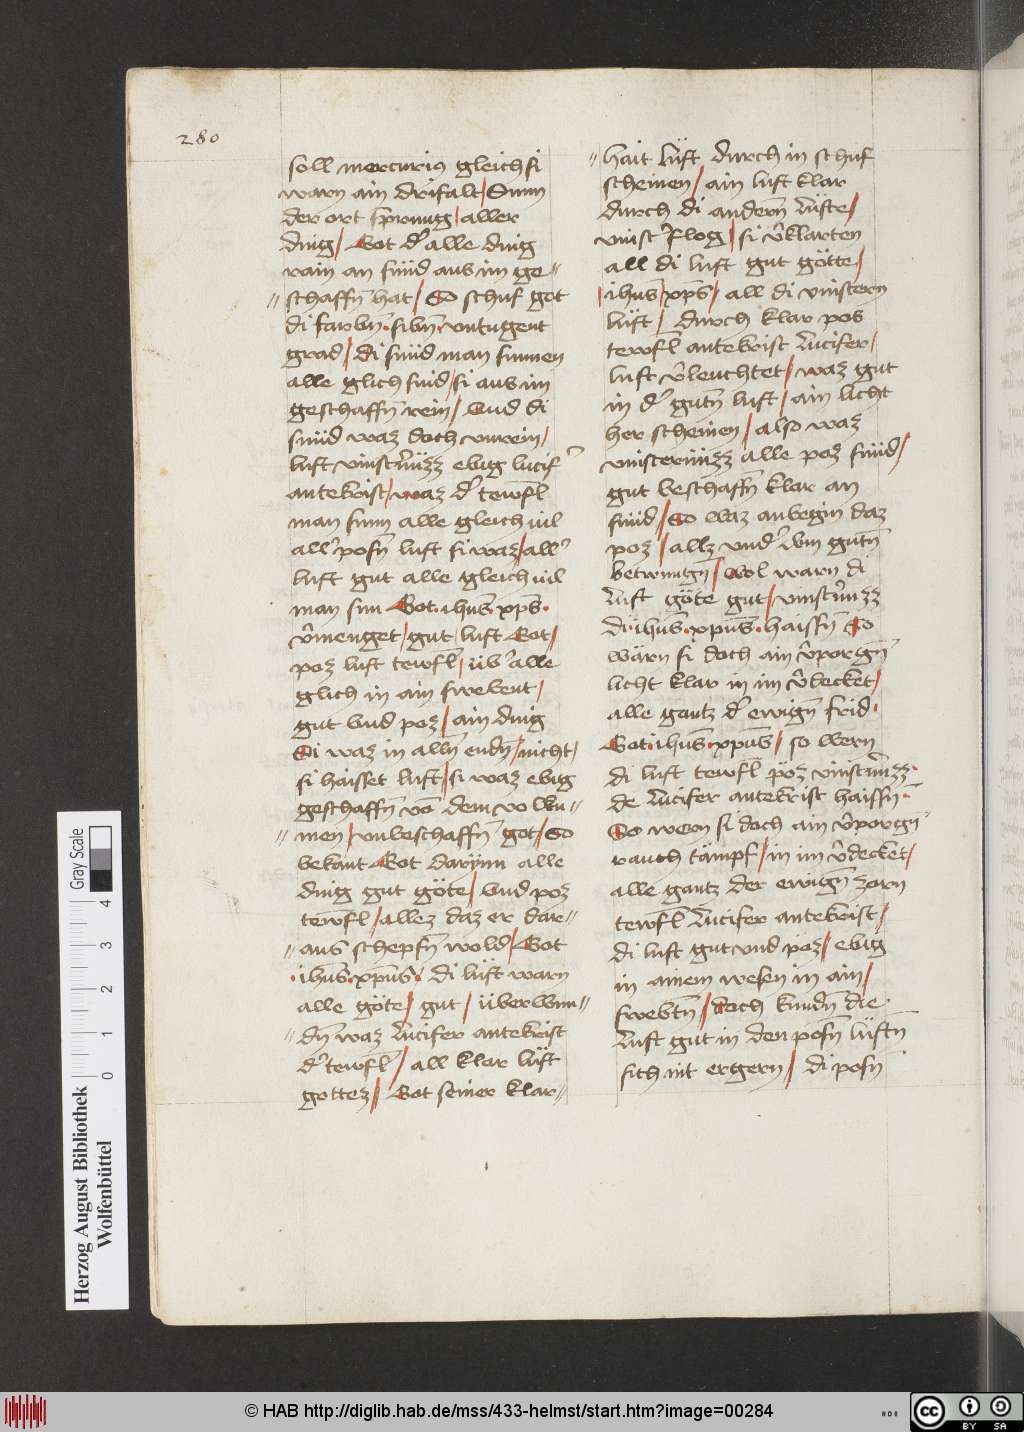 280
soll mercurius gleich si
warn ain drifalt / Sunn
der ort sprung / aller
ding / Got d̕ alle ding
rain an sünd aus im ge=
= schaffn̄ hat / So schuf got
di farbn̄ . sibn̄ . untugent
grad / Di sünd man sinnen
alle glich sind / si aus im
geschaffn̄ rein / Und di
sünd waz doch unrein /
luft vinstn̄üzz ebig lucif̕
antekrist / waz d̕ tewfl
man sinn alle gleich uil
all̕ posn̄ luft si waz / all̕
luft gut alle gleich uil
man sin Got . ihus̄ . xp̄s .
v̕menget / gut luft Got /
poz luft tewfl / üb̕ alle
glich in ain swebent /
gut vnd poz / ain ding
Di waz in alln̄ endn̄ / nicht /
si haisset luft / si waz ebig
geschaffn̄ vō dem vo lku=
= men / unbeschaffn̄ got / So
bekant Got darynn alle
ding gut göte / Und poz
tewfl / allez daz er dar=
= aus schepfn̄ wold / Got
. ihus̄ . xpus̄ . di lüft warn
alle göte / gut / überwun=
= dn̄ waz Lucifer antekrist
d̕ tewfl / all klar lüft
gottez / Got seiner klar=
= hait lüft durch in schuf
scheinen / ain luft klar
durch di andern̄ lüfte /
vinst̕ flog / si v̕klarten
all di luft gut götte /
/ ihus̄ / xp̄s / all di vinstern
lüft / durch klar pos
tewfl antekrist Lucifer /
luft v̕leuchtet / waz gut
in d̕ gutn̄ luft / ain licht
her scheinen / also waz
vinsternüzz alle poz sünd /
gut beschaffn̄ klar an
sünd / So waz anbegin daz
poz / allz und̕ dem gutn̄
betwungn̄ / Wol warn di
luft göte gut / vinstn̄uzz
di . ihus̄ . xpus̄ . haissn̄ So
wärn si doch ain v̕porgn̄
licht klar in im v̕decket /
alle gantz d̕ ewign̄ frid .
Got . ihus̄ . xpus̄ / so wern
di luft tewfl pöz vinstn̄uzz .
de Lucifer antekrist haissn̄ .
So wern si doch ain v̕porgn̄
rauch tämpf / in im v̕decket /
alle gantz der ewign̄ zorn
tewfl Lucifer antekrist /
di luft gut vnd poz / ebig
in ainem wesen in ain /
swebtn̄ / doch kundn̄ die
Luft gut in den posn̄ lüftn̄
sich nit ergern / di posn̄
Herzog August Bibliothek
Wolfenbüttel
Gray Scale
0 1 2 3 4
© HAB http://diglib.hab.de/mss/433-helmst/start.htm?image=00284
HAB
cc BY SA